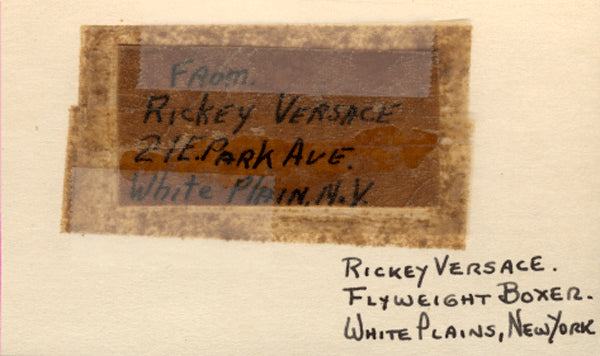 From.
Rickey Versace
21 E. Park Ave.
White Plain, N.Y.
Rickey Versace.
Flyweight Boxer.
White Plains, New York